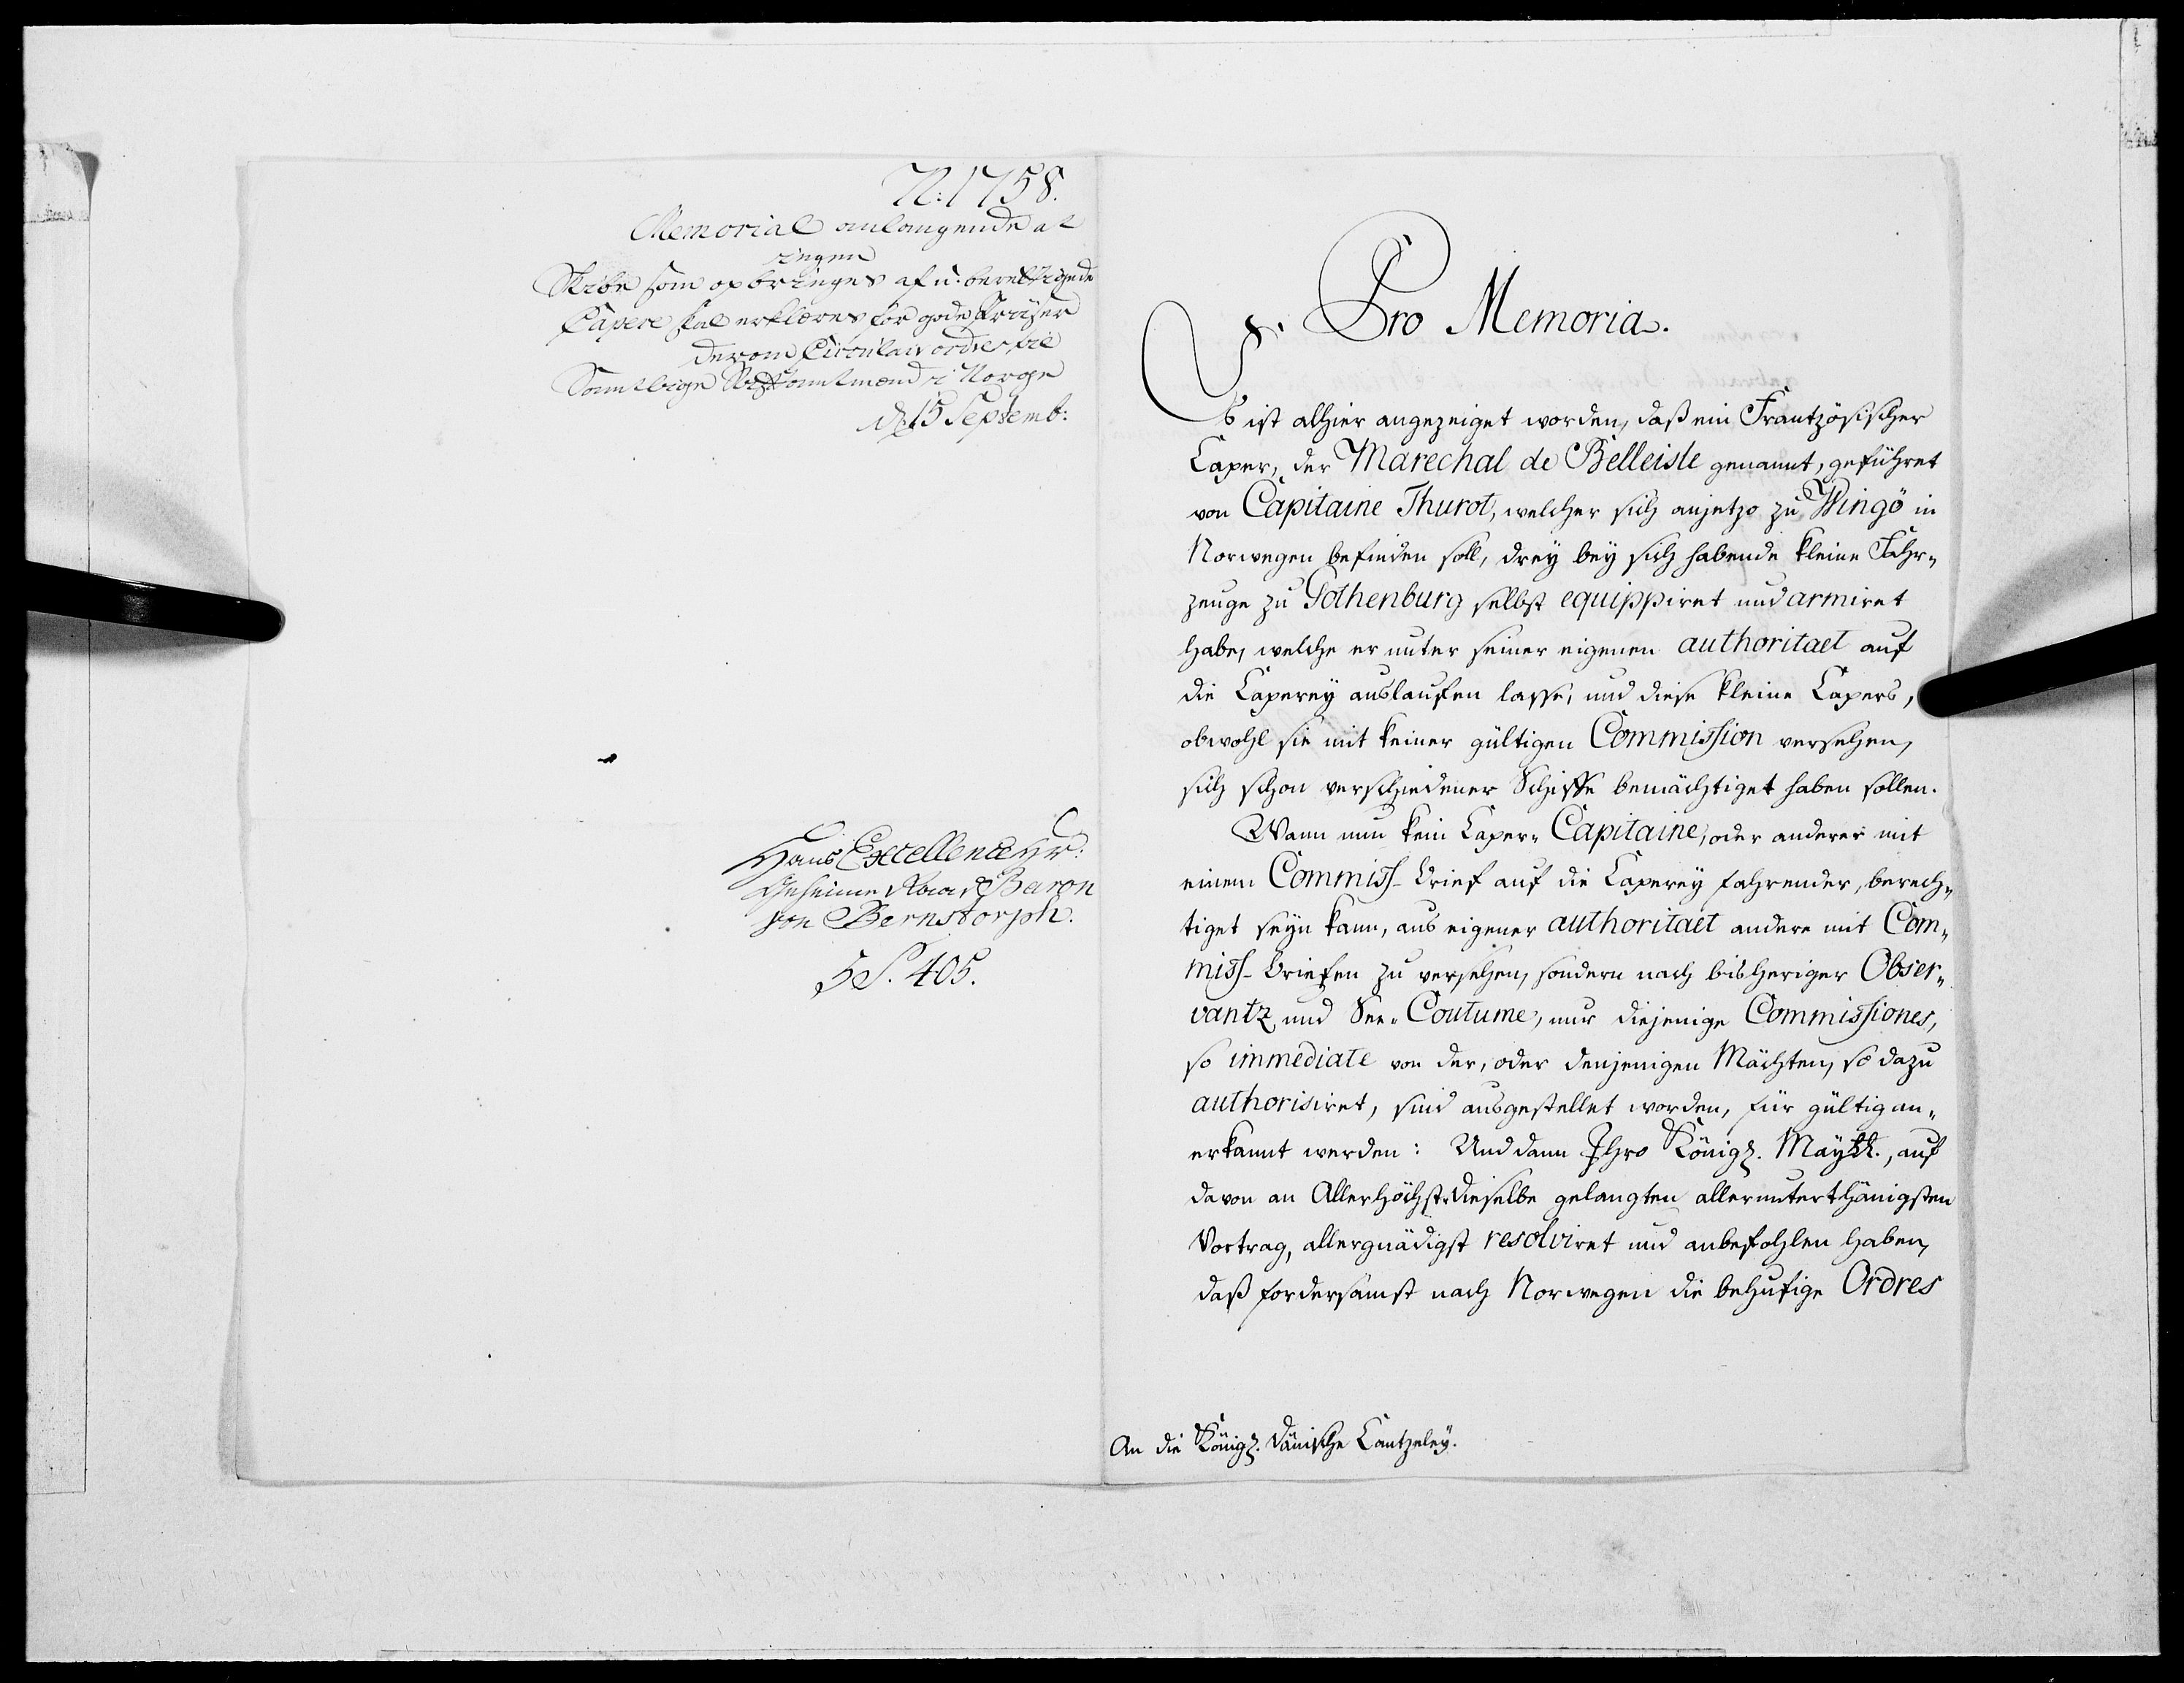 N: 1758.
Memorial anlangende at
ingen
Skibe som opbringes af u-berettigede
Capere skal erklæres for gode Priser
derom Circulair ordres til
Samtlige Stiftamtmænd i Norge
d. 15 Septemb:
Hans Excellence Hr:
Geheime Raad Baron
von Bernstorph.
S. 405.
Pro Memoria.
Es ist alhier angezeiget worden, daß ein Frantzösischer
Caper, der Marechal de Belleisle genannt, geführet
von Capitaine Thurot, welcher sich anjetzo zu Wingö in
Norwegen befinden soll, drey bey sich habende kleine Fahr-
zeuge zu Gothenburg selbst equippiret und armiret
habe, welche er unter seiner eigenen authoritaet auf
die Caperey auslaufen lasse, und diese kleine Capers,
obwohl sie mit keiner gültigen Commission versehen,
sich schon verschiedener Schiffe bemächtiget haben sollen.
Wann nun kein Caper-Capitaine, oder anderer mit
einem Commiss-Brief auf die Caperey fahrender, berech-
tiget seyn kann, aus eigener authoritaet andere mit Com-
miss-Briefen zu versehen, sondern nach bisheriger Obser-
vantz und See-Coutume, nur diejenige Commissiones,
so immediate von der, oder denjenigen Mächten, so dazu
authorisiret, sind ausgestellet worden, für gültig an-
erkannt werden: Und dann Ihro Königl. Maytt., auf
davon an Allerhöchst-Dieselbe gelangten allerunterthänigsten
Vortrag, allergnädigst resolviret und anbefohlen haben,
daß fordersamst nach Norwegen die behufige Ordres
An die Königl. Dänische Cantzeley.